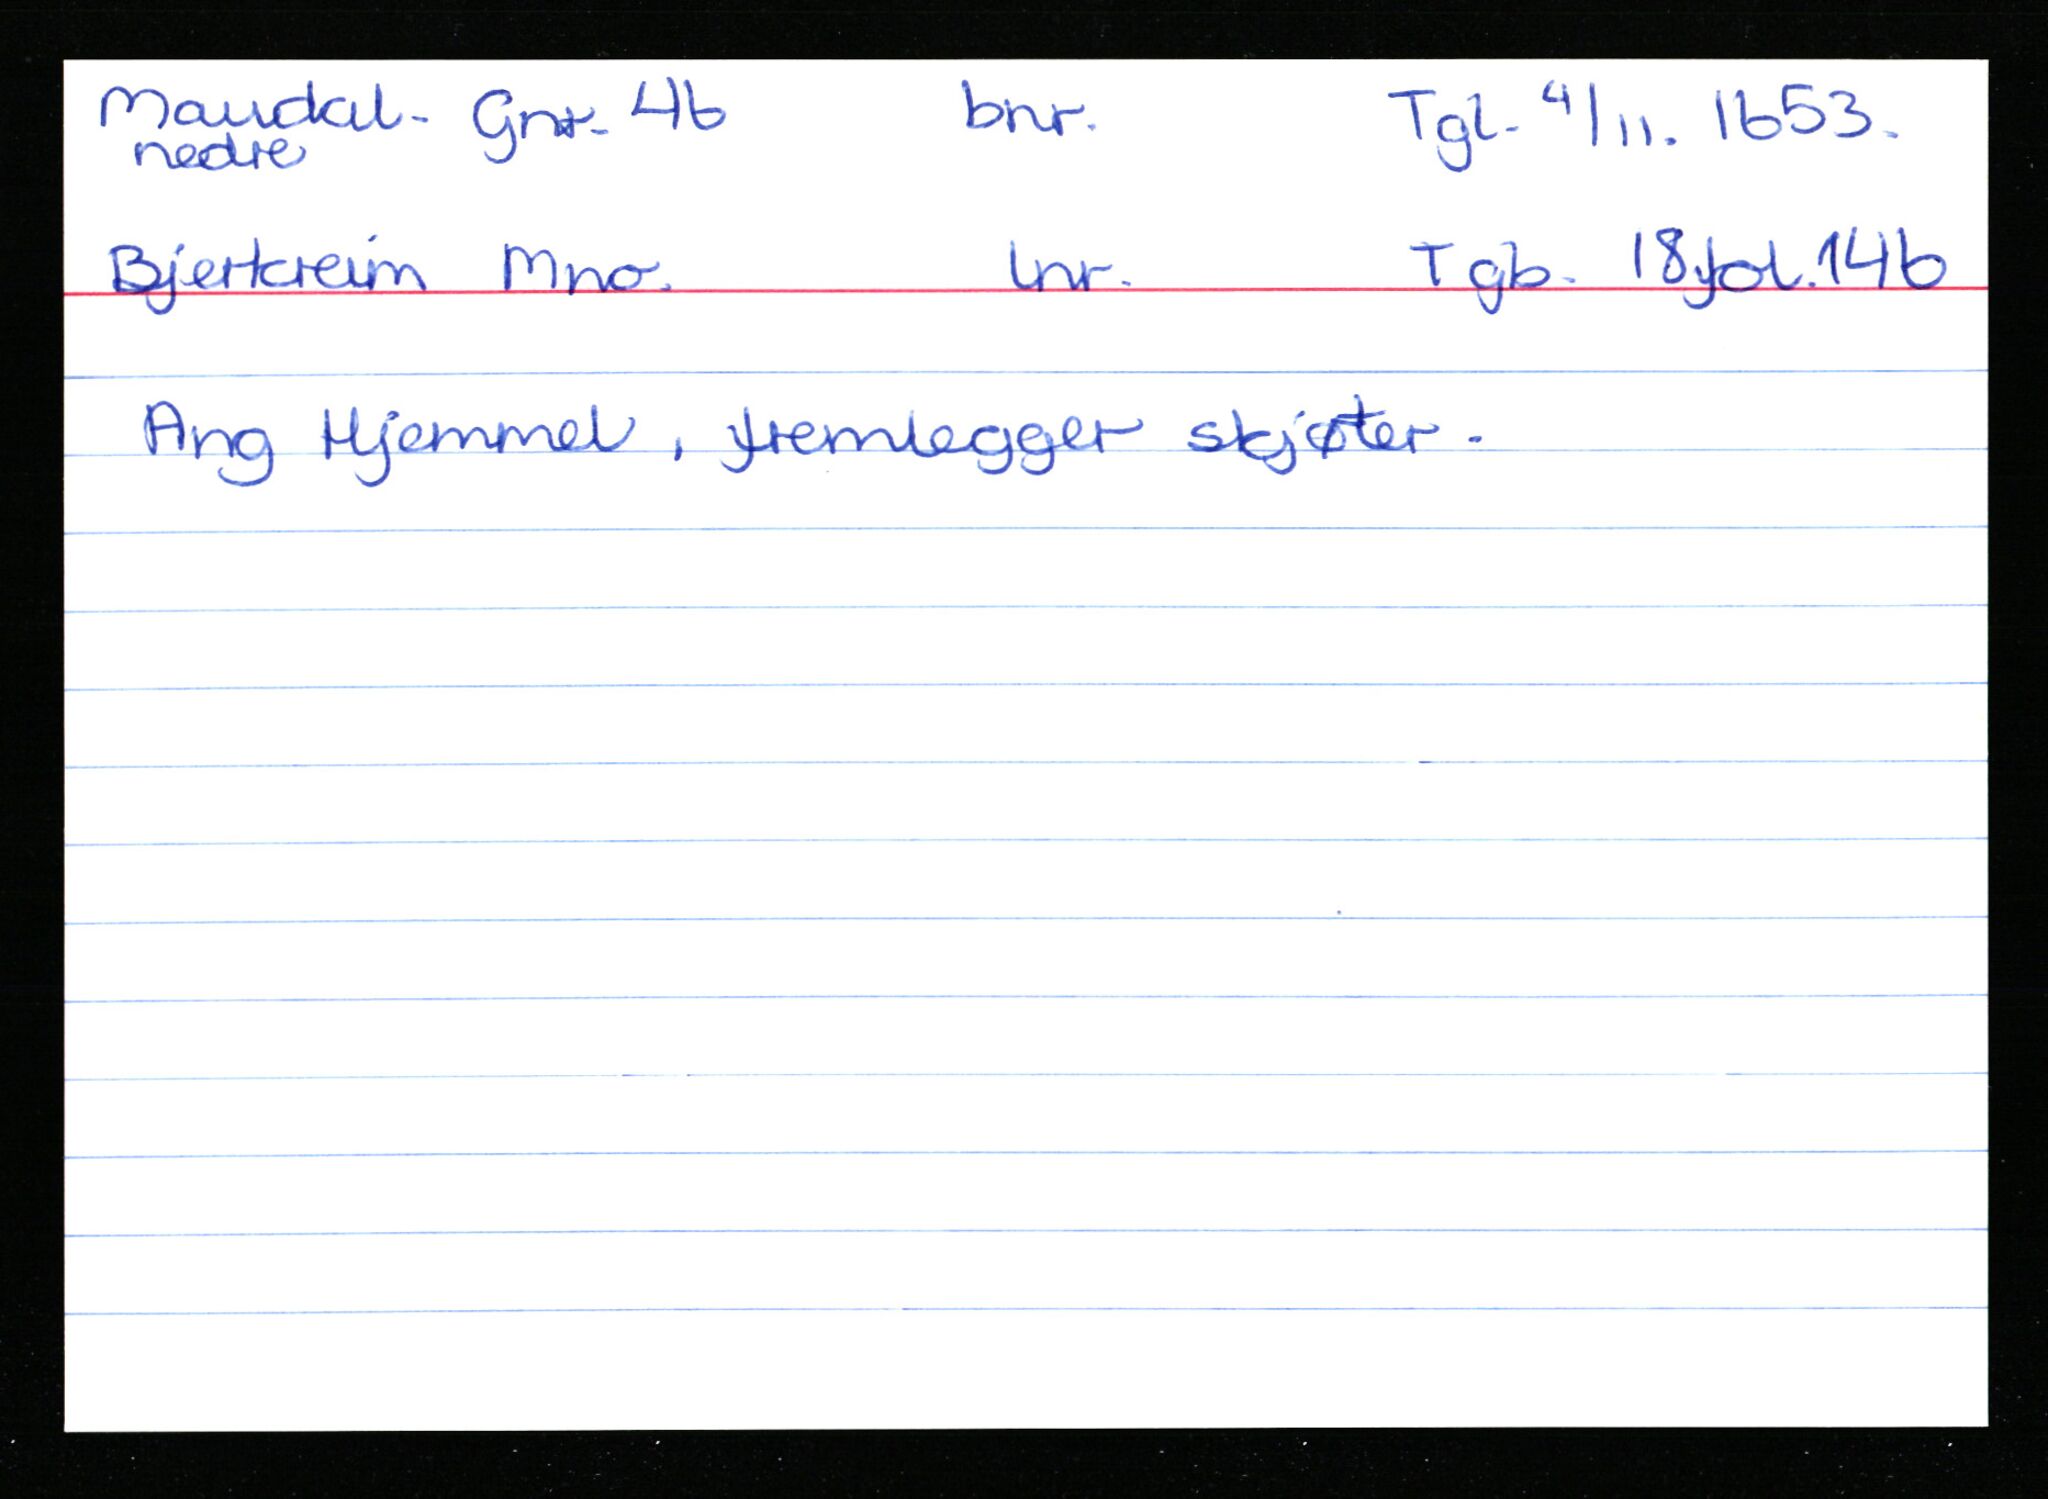 Maudal- Gnr. 46 bnr. Tgl. 4/11. 1653.
nedre
Bjerkreim Mno. lnr. Tgb. 18 fol. 146
Ang Hjemmel, fremlegger skjøter.